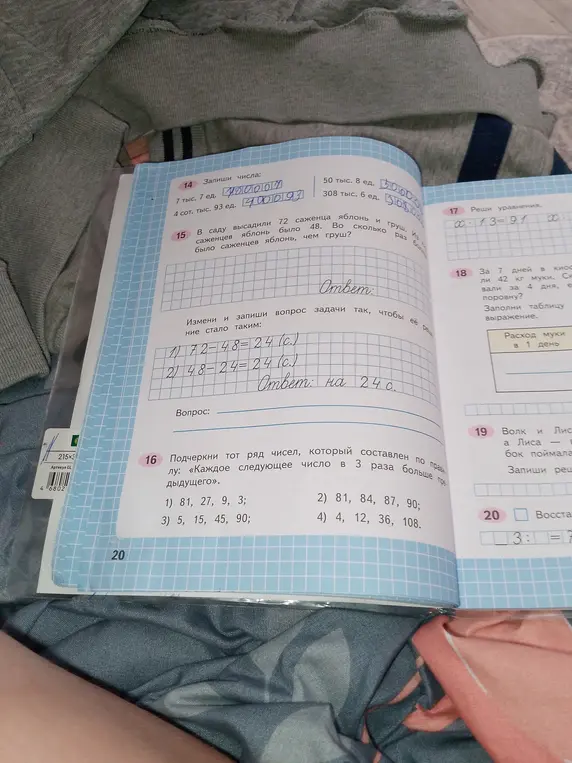 14 Запиши числа:
7 тыс. 7 ед.
50 тыс. 8 ед.
4 сот. тыс. 93 ед.
308 тыс. 6 ед.
15 В саду высадили 72 саженца яблонь и груш.
саженцев яблонь было 48. Во сколько раз
было саженцев яблонь, чем груш?
Ответ:
Измени и запиши вопрос задачи так, чтобы её
ние стало таким:
1) 72-48=24 (с.)
2) 48-24=24 (с.)
Ответ: на 24 с.
Вопрос:
16 Подчеркни тот ряд чисел, который составлен по
лу: «Каждое следующее число в 3 раза больше
дыдущего».
1) 81, 27, 9, 3;
2) 81, 84, 87, 90;
3) 5, 15, 45, 90;
4) 4, 12, 36, 108.
20
17 Реши уравнения.
x · 13=91
18 За 7 дней в
ли 42 кг муки.
вали за 4 дня,
поровну?
Заполни таблицу
выражение.
Расход муки
в 1 день
19 Волк и
а Лиса —
бок поймала
Запиши
20
3: =